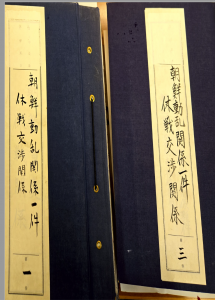 朝鮮動乱関係一件
休戦交渉関係
一
朝鮮動乱關係一件
休戦交渉関係
三